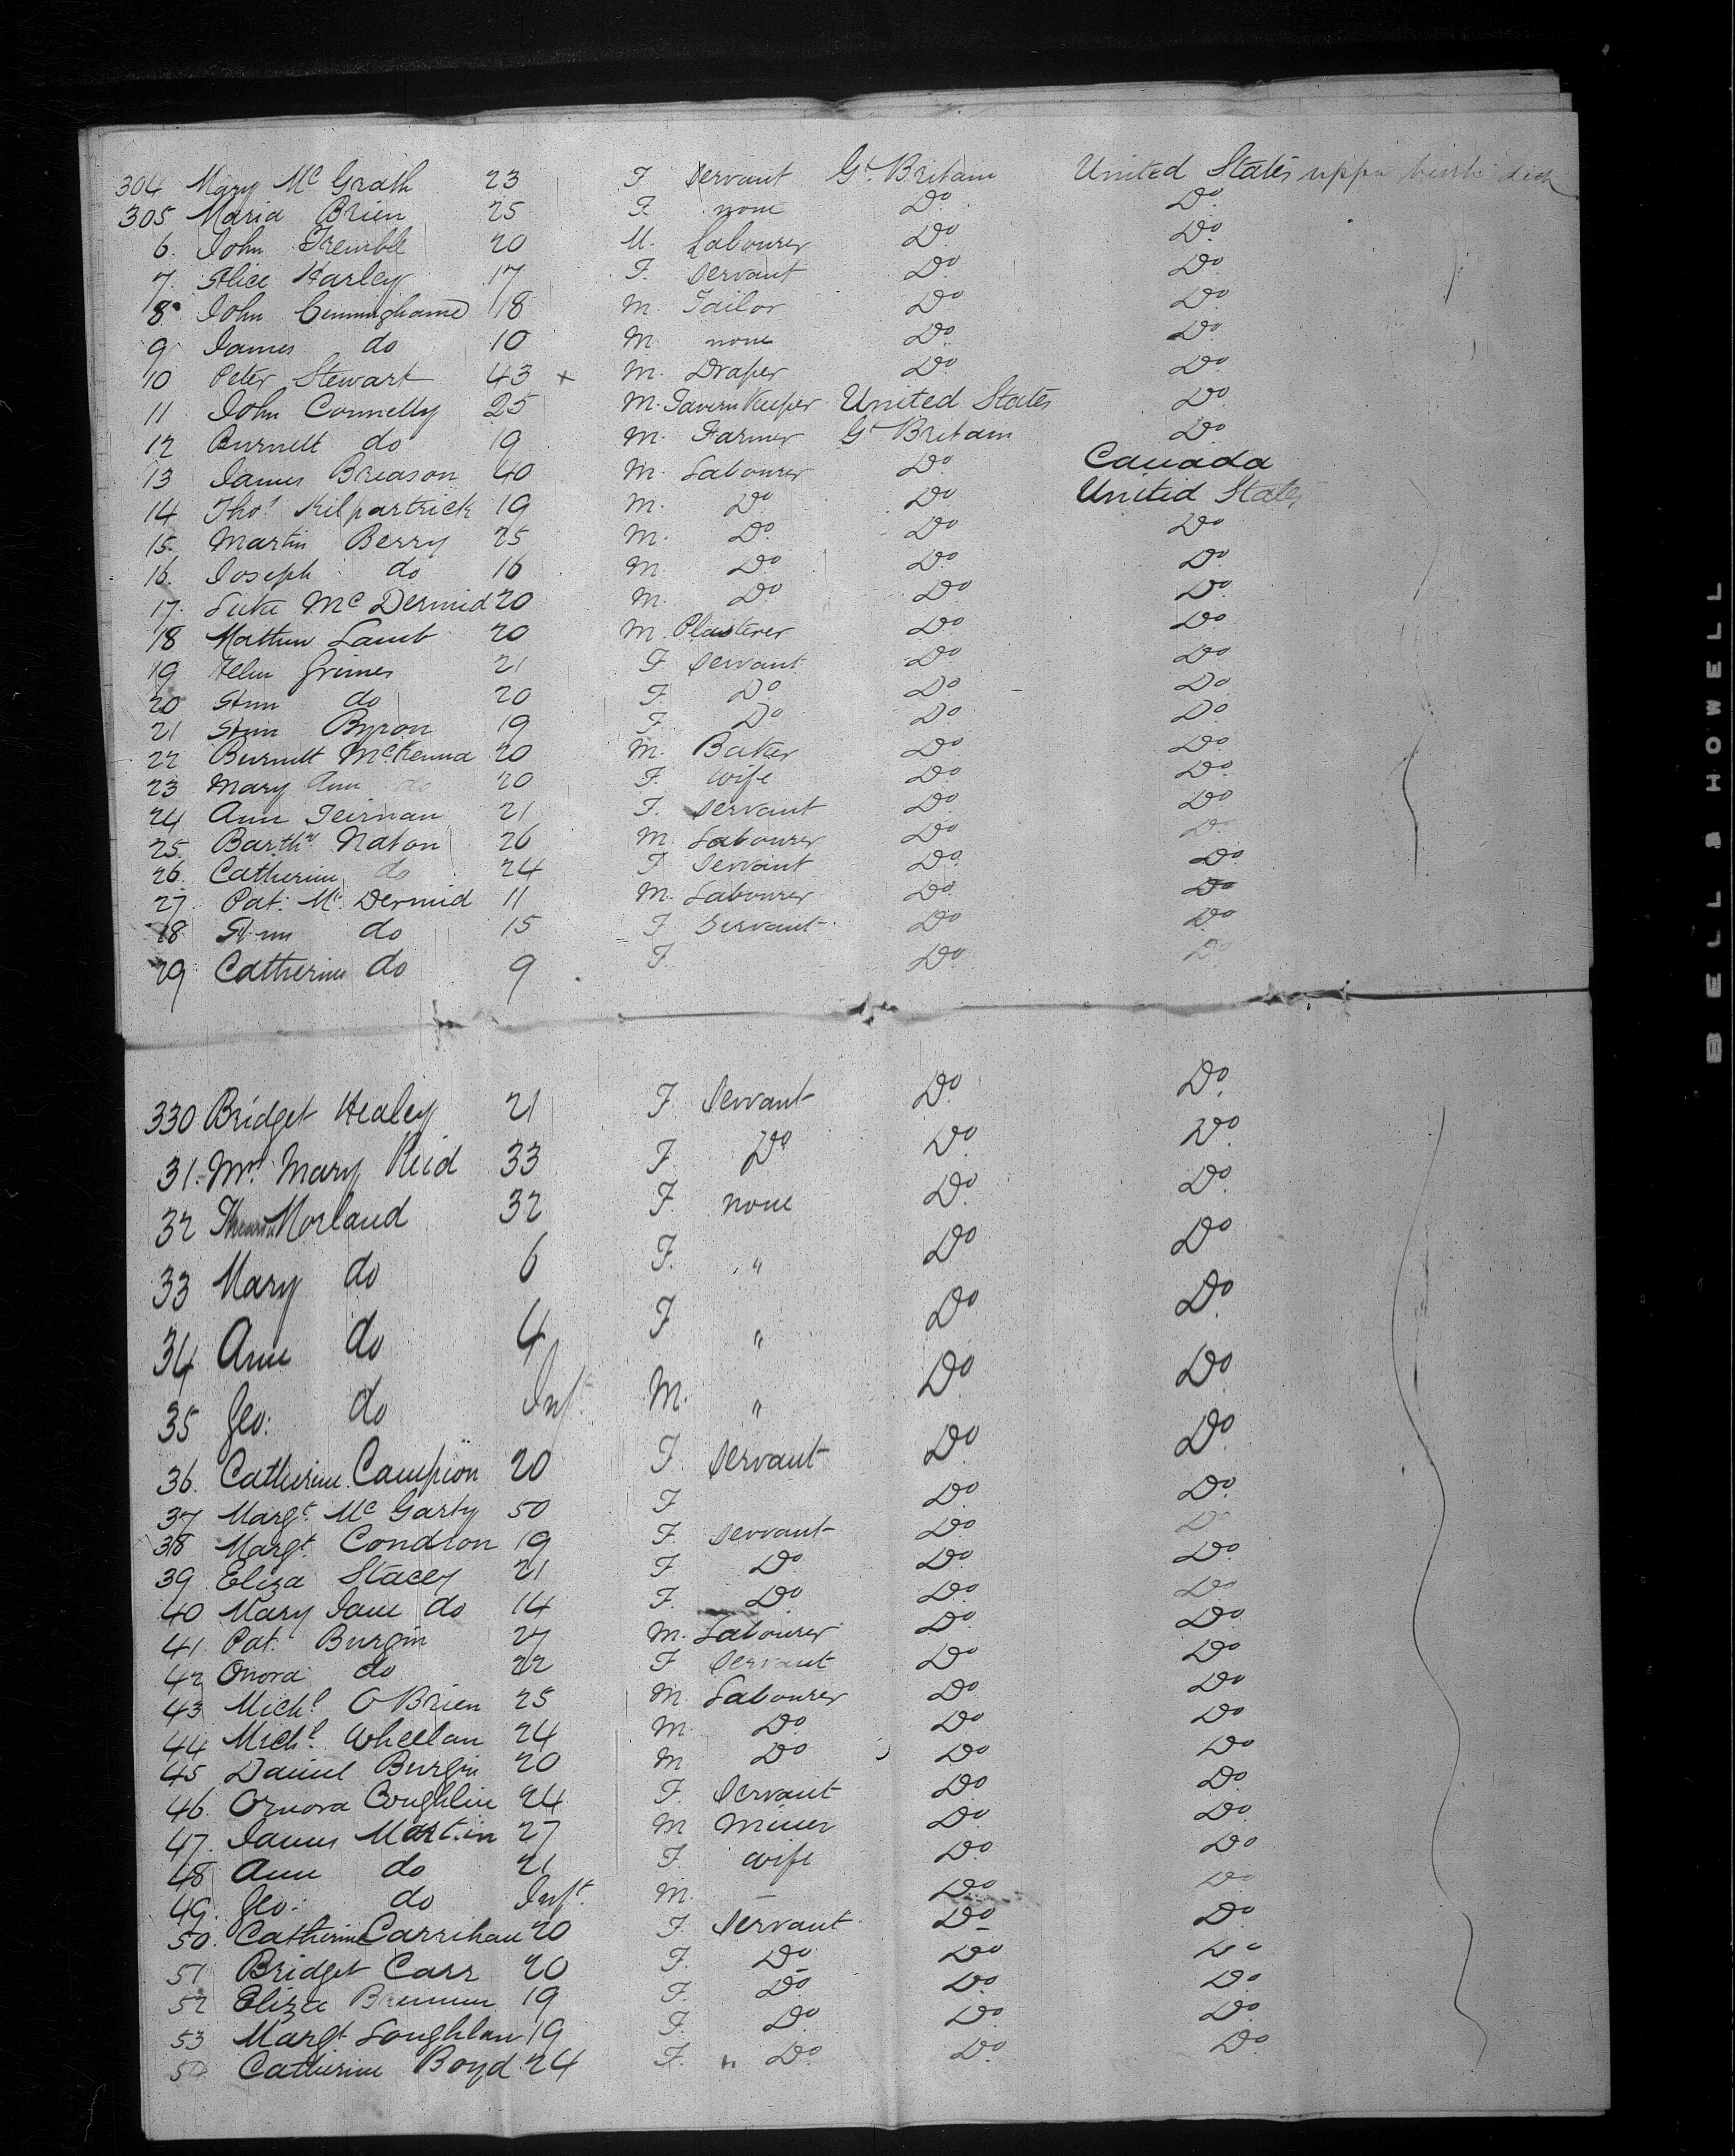 304 Mary Mc Grath 23 F Servant Gt. Britain United States upper berth deck
305 Maria Brien 25 F. none Do. Do.
6. John Tremble 20 M. Labourer Do. Do.
7. Alice Harley 17 F. Servant Do. Do.
8. John Cunninghame 18 M. Tailor Do Do.
9 James do 10 M none Do. Do.
10 Peter Stewart 43 x M. Draper Do Do.
11 John Connelly 25 M. Tavern Keeper United States Do.
12 Burnett do 19 M. Farmer Gt Britain Do.
13 James Breason 40 M. Labourer Do. Canada
14 Thos. Kilpartrick 19 M. Do. Do. United States
15. Martin Berry 25 M. Do. Do Do
16. Joseph do 16 M Do Do. Do.
17. Luke Mc Dermid 20 M. Do Do Do.
18 Mathew Lamb 20 M. Plasterer Do Do.
19 Helen Grimes 21 F Servant Do Do.
20 Ann do 20 F. Do. Do Do
21 Ann Byron 19 F. Do Do. Do.
22 Burnett McKenna 20 M. Baker Do. Do.
23 Mary Ann do 20 F. wife Do. Do.
24 Ann Teirnan 21 F. Servant Do. Do
25. Barthw Naton 26 M. Labourer Do. Do.
26. Catherine do 24 F Servant Do. Do
27. Pat. Mc. Dermid 11 M. Labourer Do. Do
28 Ann do 15 F Servant Do Do
29 Catherine do 9 F. Do. Do
330 Bridget Healey 21 F. Servant Do. Do.
31. Mrs. Mary Reid 33 F. Do Do. Do.
32 Morland 32 F. none Do. Do.
33 Mary do 6 F. " Do Do
34 Ann do 4 F " Do Do.
35 Geo: do Inft. M. " Do. Do
36. Catherine Campion 20 F. Servant Do Do.
37 Margt. Mc Garty 50 F Do. Do.
38 Margt. Condron 19 F. Servant Do. Do
39 Eliza Stacey 21 F Do. Do. Do.
40 Mary Jane do 14 F. Do Do. Do
41. Pat. Burgin 27 M. Labourer Do. Do.
42 Onora do 22 F Servant Do Do.
43 Michl. O Brien 25 M. Labourer Do. Do
44 Michl. Wheelan 24 M. Do. Do Do
45 Daniel Burgin 20 M. Do Do Do
46. Ornora Coughlin 24 F. Servant Do Do.
47. James Martin 27 M Miner Do. Do.
48 Ann do 21 F. wife Do. Do
49. Geo: do Inft. M. - Do. Do
50. Catherine Carrihan 20 F. Servant Do Do.
51 Bridget Carr 20 F. Do Do Do
52 Eliza Brennen 19 F. Do. Do. Do.
53 Margt. Loughlan 19 F. Do. Do. Do.
54 Catherine Boyd 24 F. " Do. Do. Do.
BELL & HOWELL